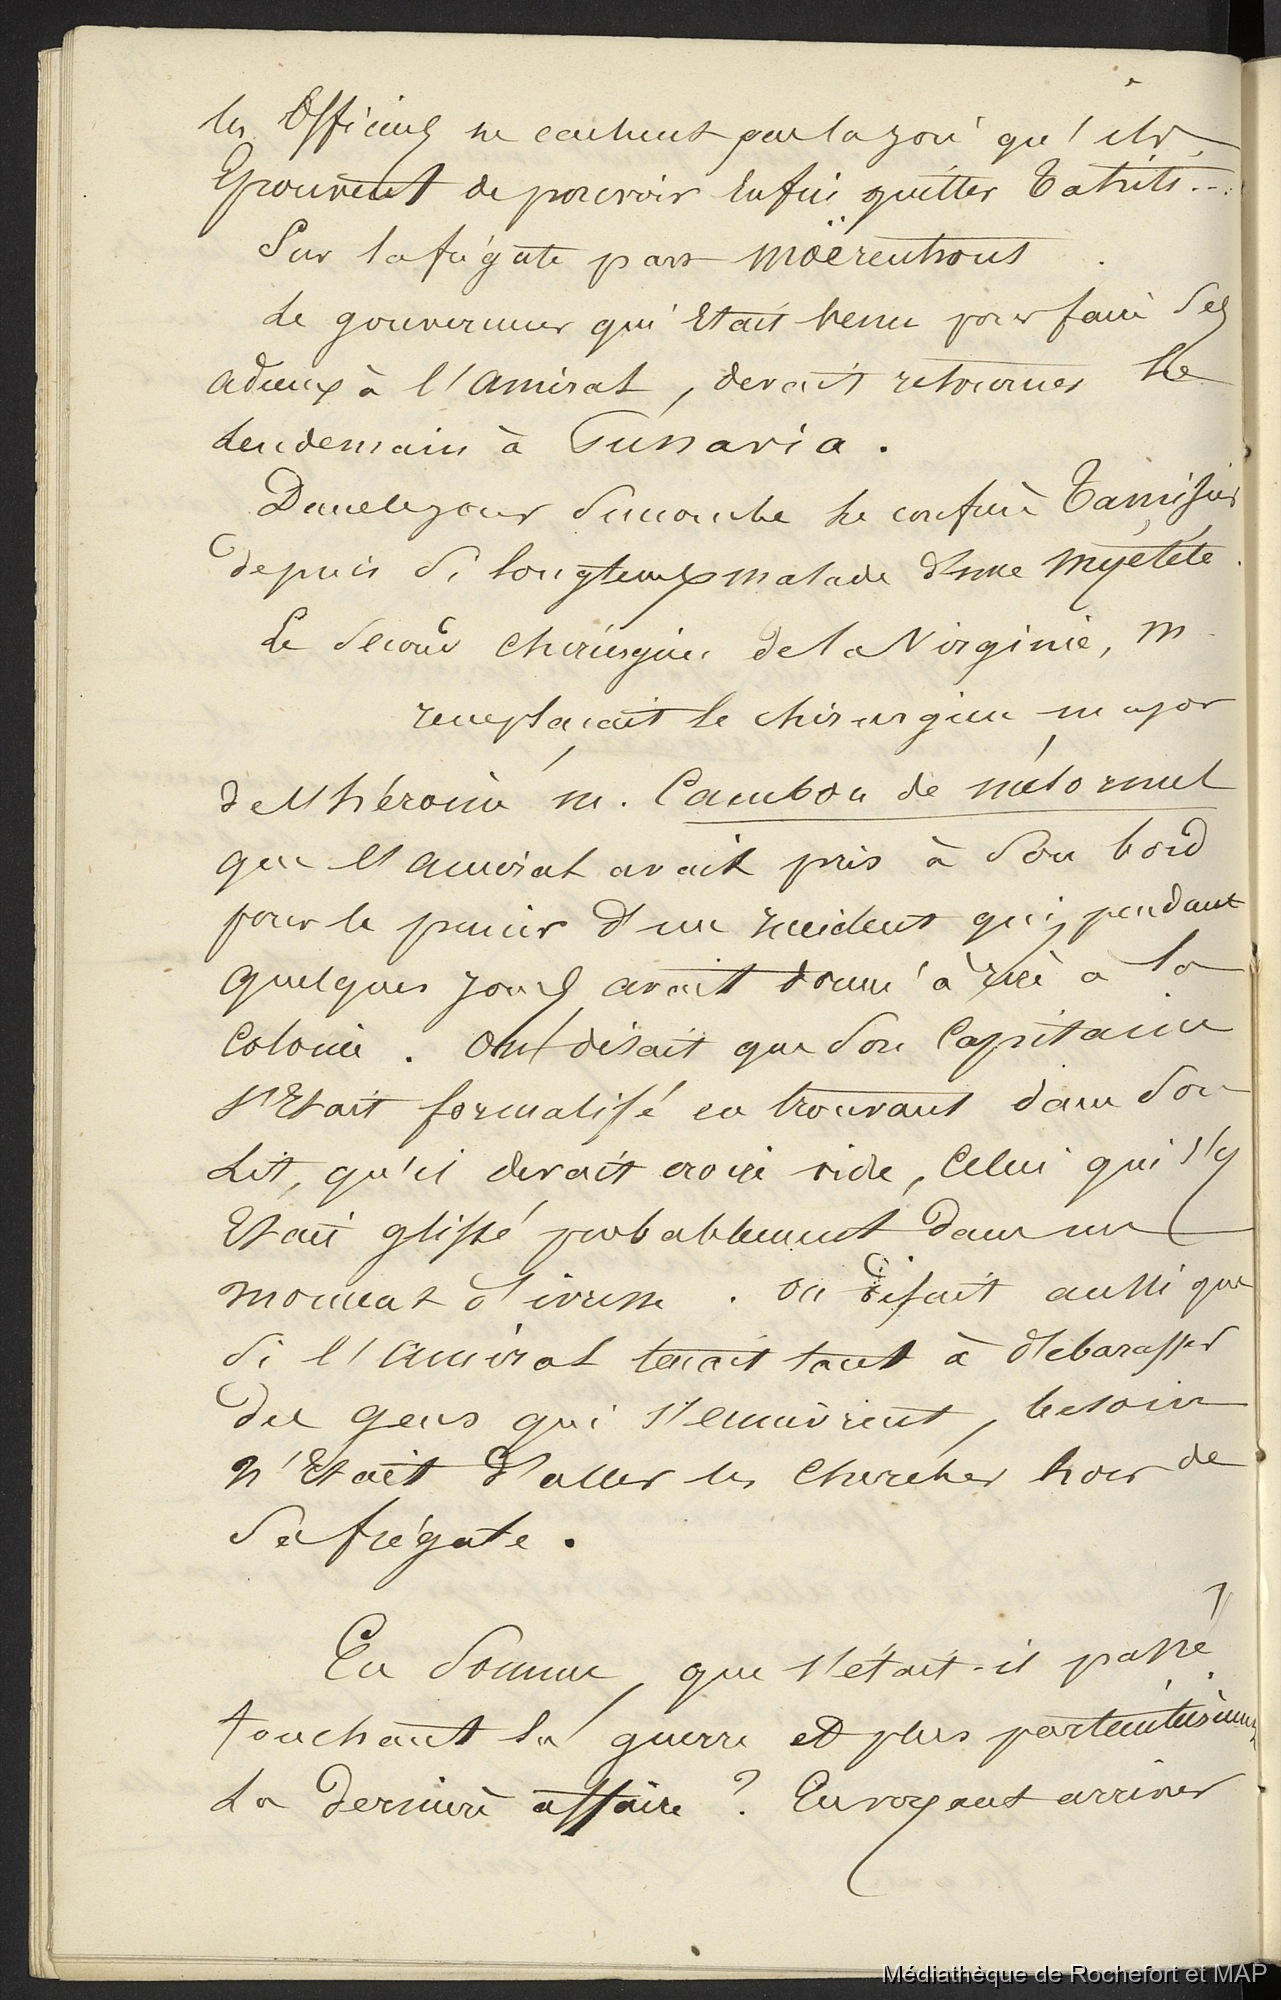 les Officiers ne cachent pas la joie qu'ils
Eprouvent de pouvoir Enfin quitter Tahiti...
Sur la frégate part Moërenhout
Le gouverneur qui Etait Venu pour faire Ses
adieux à l'Amiral, devait retourner le
Lendemain à Punavia.
Dans le jour Dimanche le confrère Tamisier
depuis Si longtemps malade d'une Myélite.
Le Second chirurgien de la Virginie, M
remplaçait le chirurgien major
de l'héroïne M. Cambon de
que l'amiral avait pris à Son bord
pour le punir d'un incident qui, pendant
quelques jours avait donné à rire à la
Colonie. On disait que Son Capitaine
s'Etait formalisé en trouvant dans Son
Lit, qu'il devait croire vide, Celui qui s'y
Etait glissé probablement dans un
moment d'ivresse. On disait aussi que
Si l'Amiral tenait tant à débarasser
des gens qui s'enivrent, besoin
n'Etait d'aller les Chercher hors de
Sa frégate.
En Somme, que s'était-il passé
touchant la guerre et plus particulièrement
La dernière affaire ? En voyant arriver
Médiathèque de Rochefort et MAP